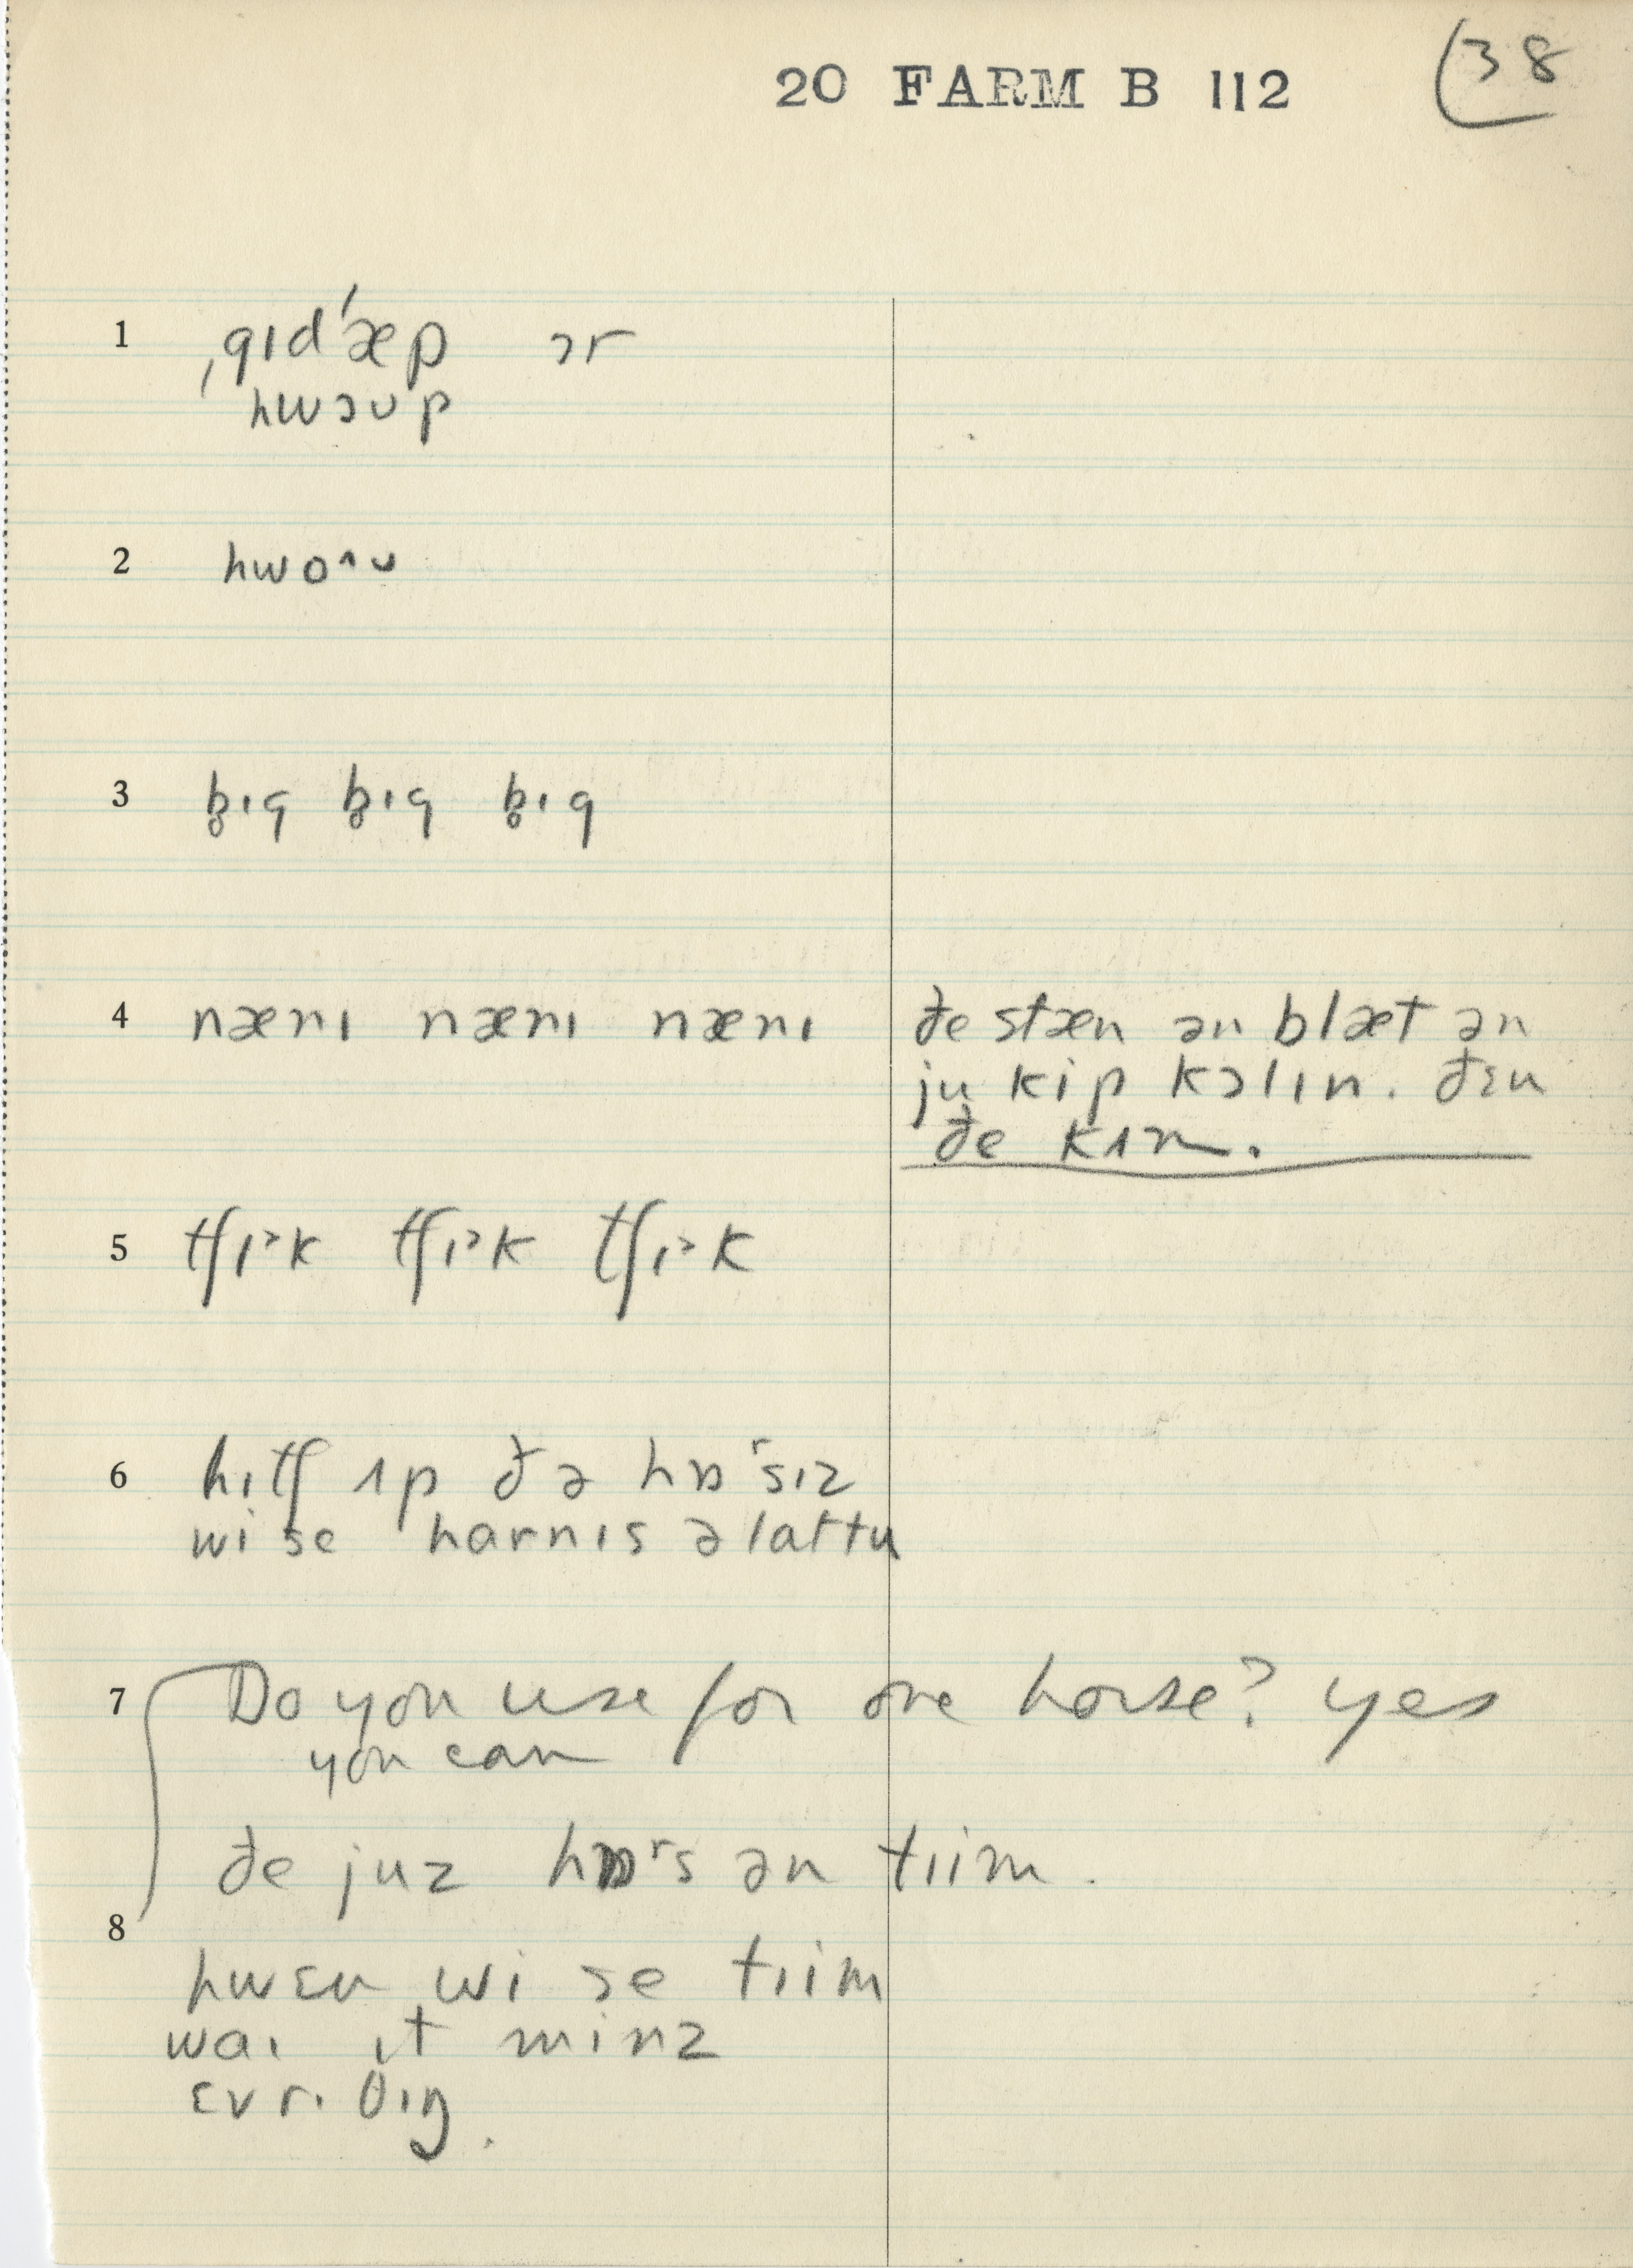 20 FARM B 112
38
1 ˌgɪdˈæp ɔr
hwɔʊp
2 hwo^ʊ
3 b̥ɪg b̥ɪg b̥ɪg
4 nænɪ nænɪ nænɪ
ðe stæn ən blæt ən
ju kip kɔlɪn. ðɛn
ðe kʌm.
5 tʃɪ˃k tʃɪ˃k tʃɪ˃k
6 hɪtʃ ʌp ðə hɒʳsɪz
wi se harnɪs əlattu
7 Do you use for one horse? yes
you can
ðe juz hɒʳs ən tɪim.
8
hwɛn wi se tɪim
waɪ ɪt minz
ɛvrɪ θɪŋ.